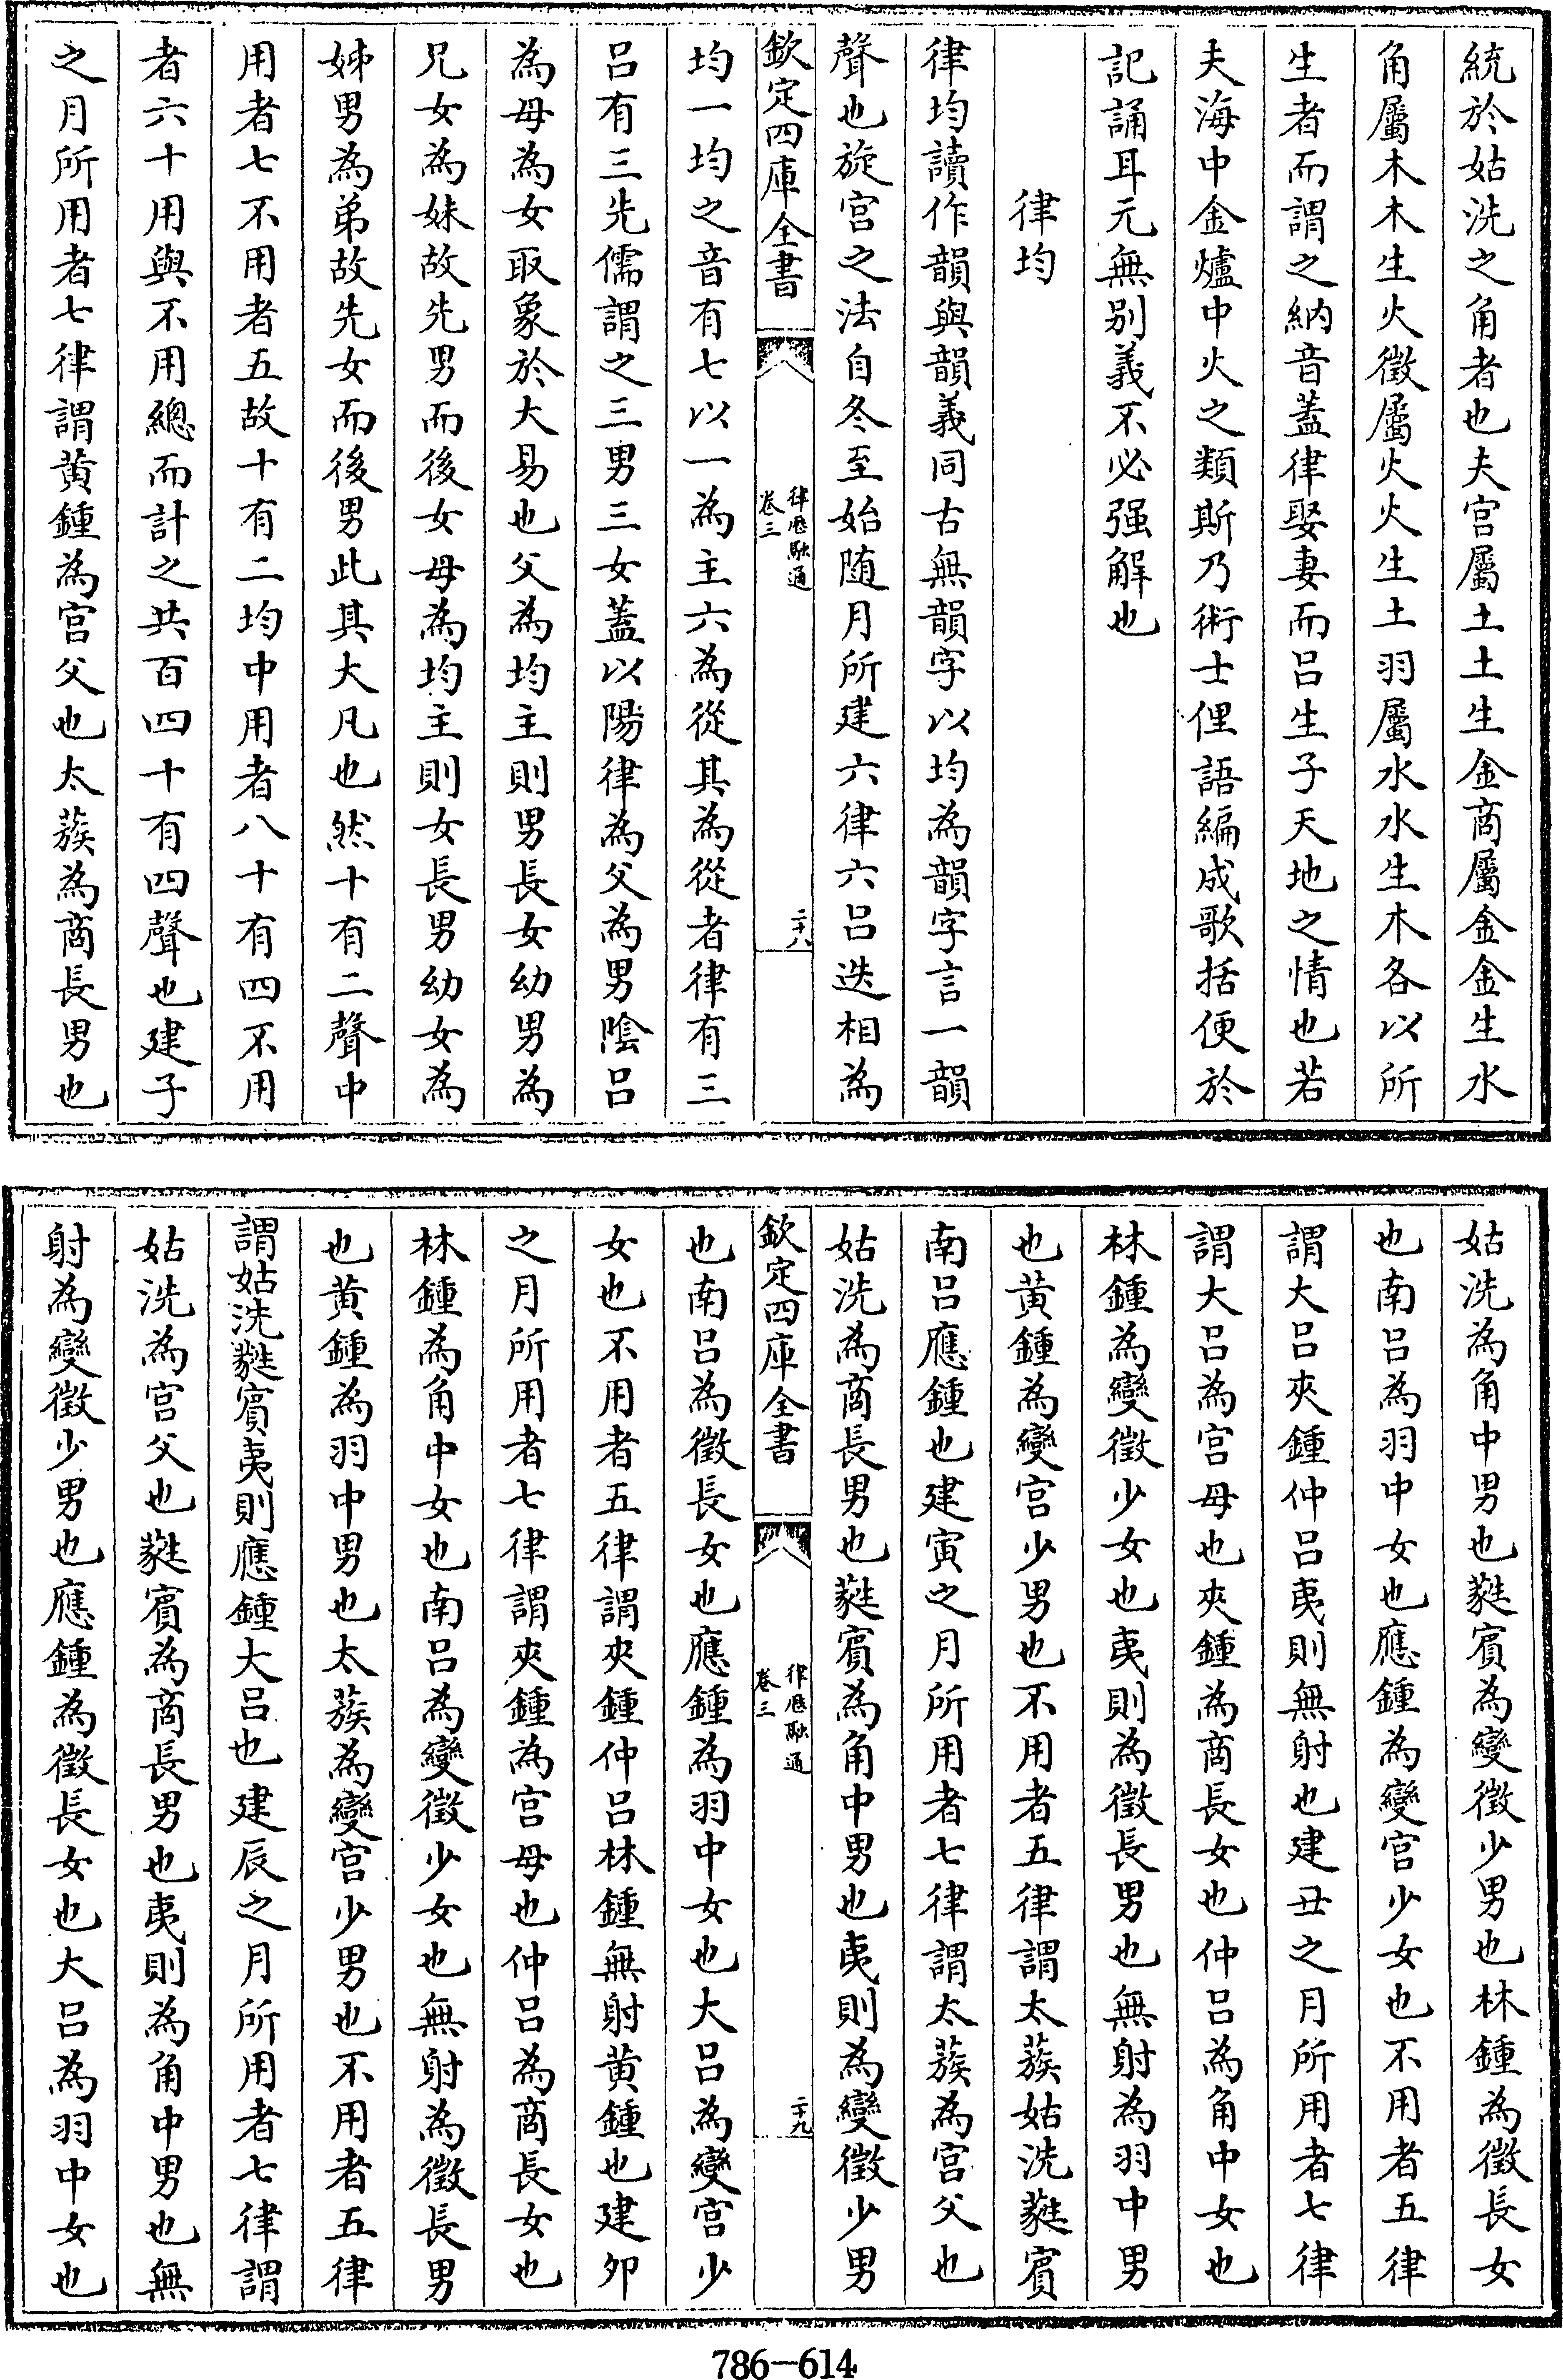 統於姑洗之角者也夫宫屬土土生金商屬金金生水
角屬木木生火徵屬火火生土羽屬水水生木各以所
生者而謂之納音蓋律娶妻而吕生子天地之情也若
夫海中金爐中火之類斯乃術士俚語編成歌括便於
記誦耳元無别義不必强解也
律均
律均讀作韻與韻義同古無韻字以均為韻字言一韻
聲也旋宫之法自冬至始随月所建六律六吕迭相為
欽定四庫全書
律厯融通
卷三
二十八
均一均之音有七以一為主六為從其為從者律有三
吕有三先儒謂之三男三女蓋以陽律為父為男陰吕
為母為女取象於大易也父為均主則男長女幼男為
兄女為妹故先男而後女母為均主則女長男幼女為
姊男為弟故先女而後男此其大凡也然十有二聲中
用者七不用者五故十有二均中用者八十有四不用
者六十用與不用總而計之共百四十有四聲也建子
之月所用者七律謂黄鍾為宫父也太蔟為商長男也
姑洗為角中男也蕤賓為變徵少男也林鍾為徵長女
也南吕為羽中女也應鍾為變宫少女也不用者五律
謂大吕夾鍾仲吕夷則無射也建丑之月所用者七律
謂大吕為宫母也夾鍾為商長女也仲吕為角中女也
林鍾為變徵少女也夷則為徵長男也無射為羽中男
也黄鍾為變宫少男也不用者五律謂太蔟姑洗蕤賓
南吕應鍾也建寅之月所用者七律謂太蔟為宫父也
姑洗為商長男也蕤賓為角中男也夷則為變徵少男
欽定四庫全書
律厯融通
卷三
二十九
也南吕為徵長女也應鍾為羽中女也大吕為變宫少
女也不用者五律謂夾鍾仲吕林鍾無射黄鍾也建卯
之月所用者七律謂夾鍾為宫母也仲吕為商長女也
林鍾為角中女也南吕為變徵少女也無射為徵長男
也黄鍾為羽中男也太蔟為變宫少男也不用者五律
謂姑洗蕤賓夷則應鍾大吕也建辰之月所用者七律謂
姑洗為宫父也蕤賓為商長男也夷則為角中男也無
射為變徵少男也應鍾為徵長女也大吕為羽中女也
786-614